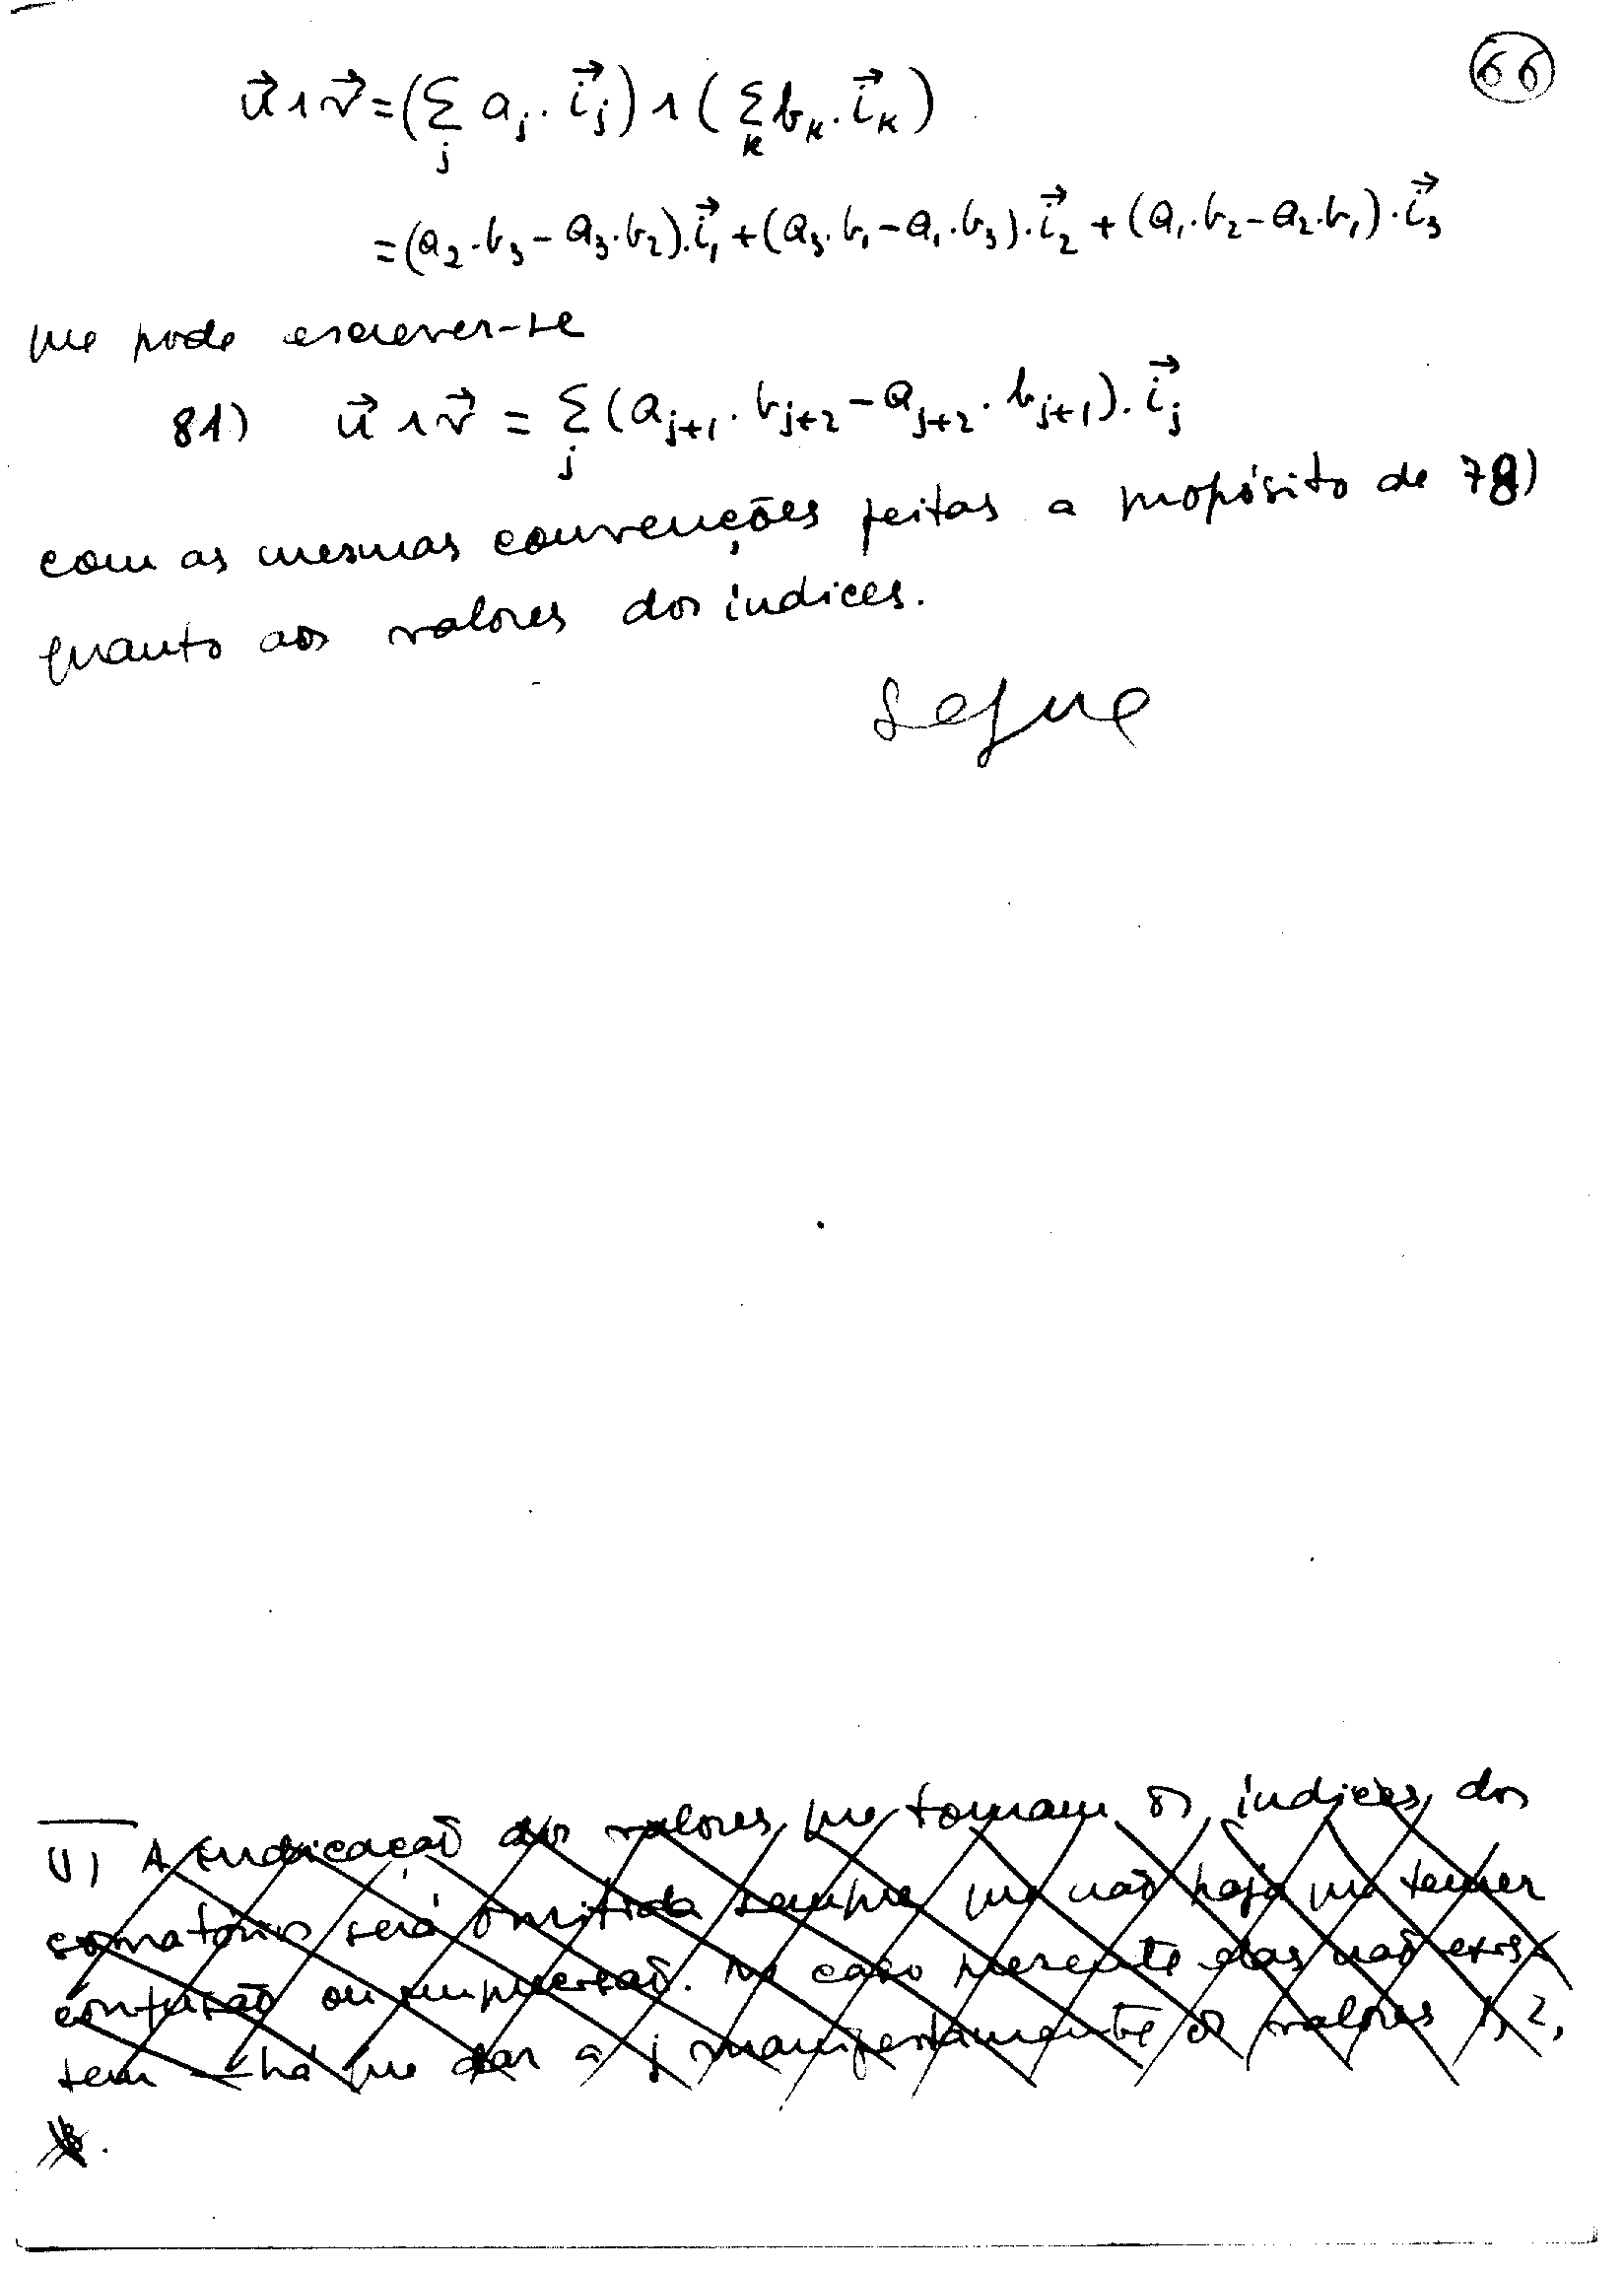 66
u⃗ ∧ v⃗ = (Σ_j a_j . i⃗_j) ∧ (Σ_k b_k . i⃗_k)
= (a₂.b₃ - a₃.b₂).i⃗₁ + (a₃.b₁ - a₁.b₃).i⃗₂ + (a₁.b₂ - a₂.b₁).i⃗₃
que pode escrever-se
81) u⃗ ∧ v⃗ = Σ_j (a_{j+1} . b_{j+2} - a_{j+2} . b_{j+1}). i⃗_j
com as mesmas convenções feitas a propósito de 78)
quanto aos valores dos índices.
Segue
(1) A indicação dos valores que tomam os índices dos
somatórios será omitida sempre que não haja que temer
confusão ou imprecisão. No caso presente elas não exis-
tem — há que dar a j manifestamente os valores 1, 2,
3.